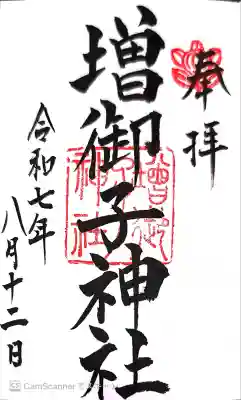 奉拝
増御子神社
増御子神社
令和七年
八月十二日
CamScanner